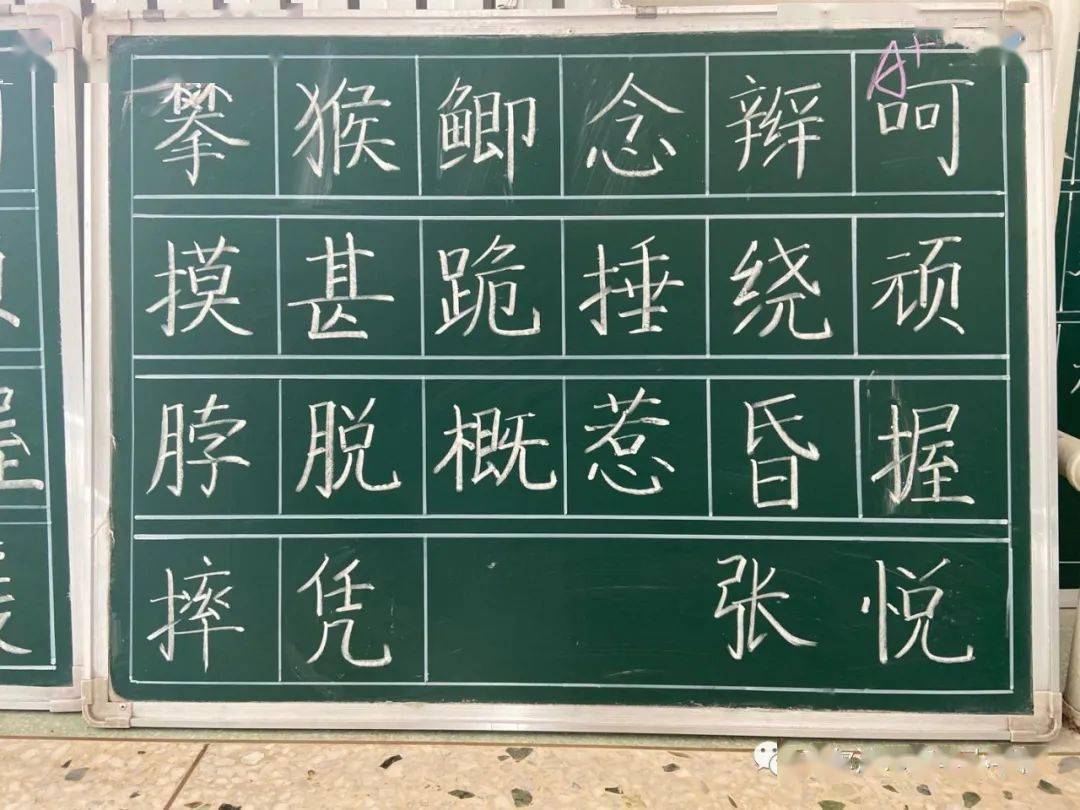 攀猴鲫念辩呵
摸甚跪捶绕顽
脖脱概惹昏握
摔凭 张悦
A+